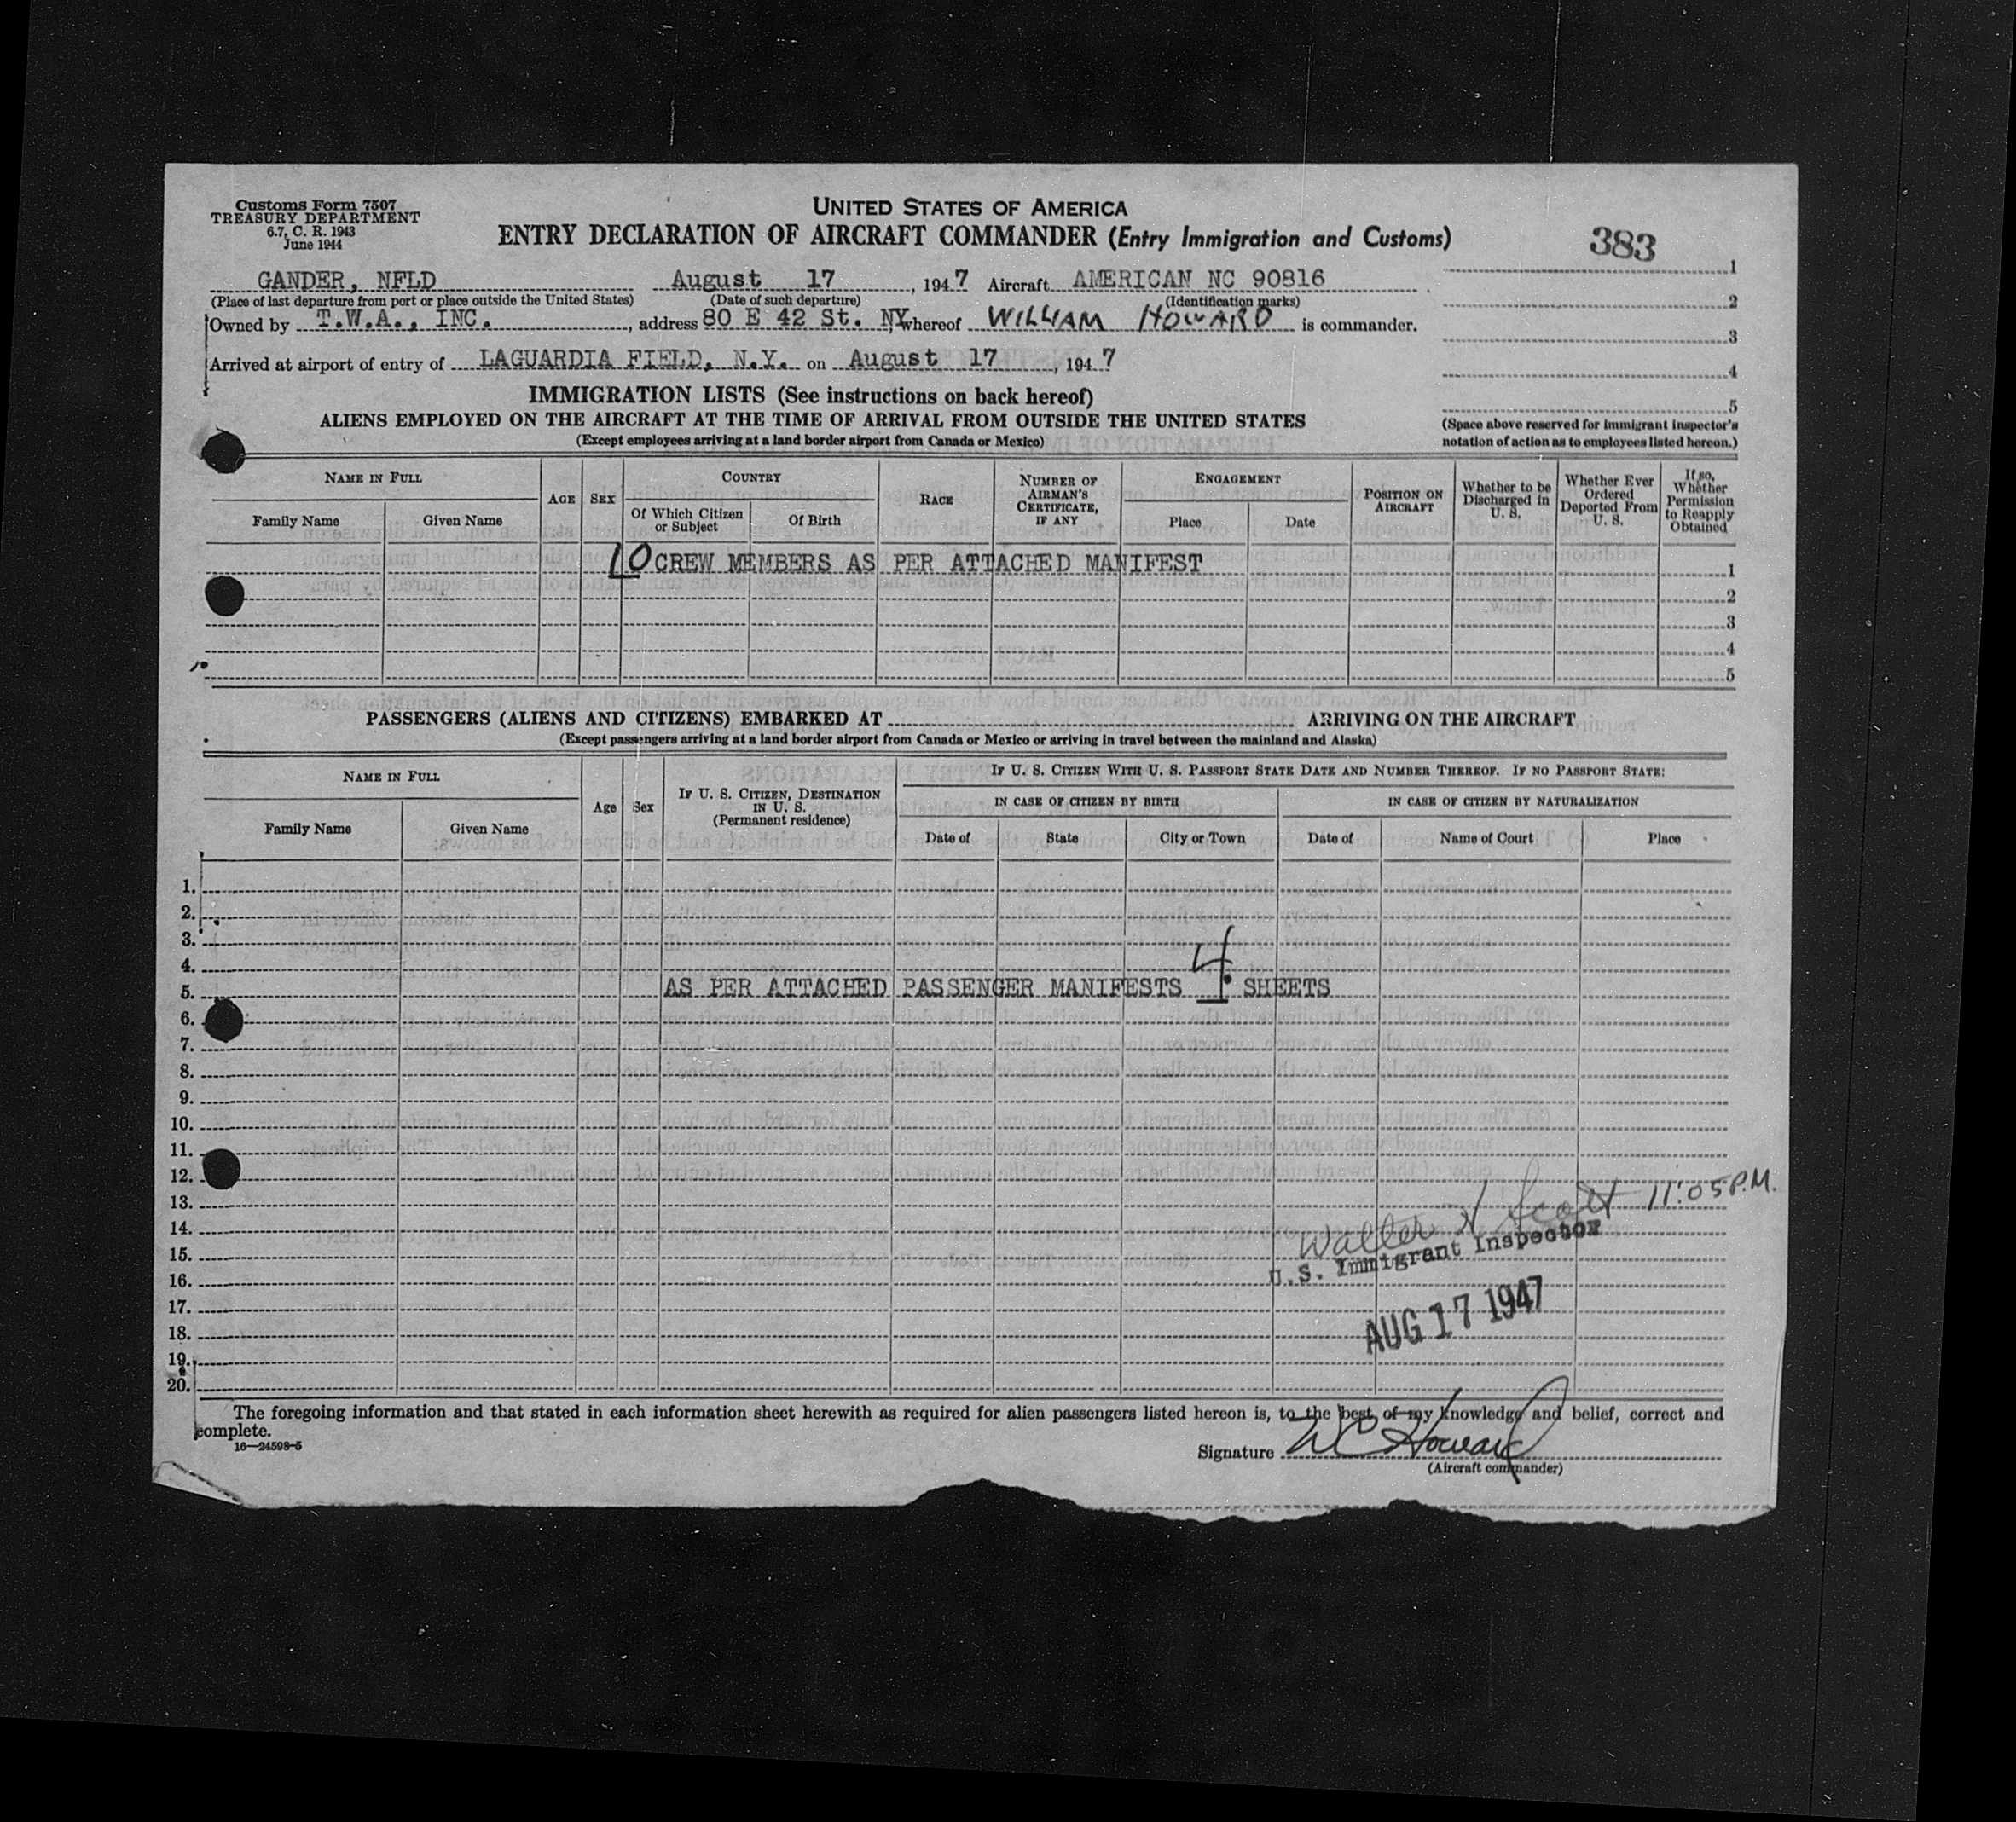 Customs Form 7507
TREASURY DEPARTMENT
6.7, C. R. 1943
June 1944
UNITED STATES OF AMERICA
ENTRY DECLARATION OF AIRCRAFT COMMANDER (Entry Immigration and Customs)
383
GANDER, NFLD August 17, 1947 Aircraft AMERICAN NC 90816
(Place of last departure from port or place outside the United States) (Date of such departure) (Identification marks)
Owned by T.W.A., INC., address 80 E 42 St. NY whereof WILLIAM HOWARD is commander.
Arrived at airport of entry of LAGUARDIA FIELD, N.Y. on August 17, 1947
1
2
3
4
5
(Space above reserved for immigrant inspector's
notation of action as to employees listed hereon.)
IMMIGRATION LISTS (See instructions on back hereof)
ALIENS EMPLOYED ON THE AIRCRAFT AT THE TIME OF ARRIVAL FROM OUTSIDE THE UNITED STATES
(Except employees arriving at a land border airport from Canada or Mexico)
NAME IN FULL
Family Name
Given Name
AGE
SEX
COUNTRY
Of Which Citizen
or Subject
Of Birth
RACE
NUMBER OF
AIRMAN'S
CERTIFICATE,
IF ANY
ENGAGEMENT
Place
Date
POSITION ON
AIRCRAFT
Whether to be
Discharged in
U. S.
Whether Ever
Ordered
Deported From
U. S.
If so,
Whether
Permission
to Reapply
Obtained
10 CREW MEMBERS AS PER ATTACHED MANIFEST 1
2
3
4
5
PASSENGERS (ALIENS AND CITIZENS) EMBARKED AT ARRIVING ON THE AIRCRAFT
(Except passengers arriving at a land border airport from Canada or Mexico or arriving in travel between the mainland and Alaska)
NAME IN FULL
Family Name
Given Name
Age
Sex
IF U. S. CITIZEN, DESTINATION
IN U. S.
(Permanent residence)
IF U. S. CITIZEN WITH U. S. PASSPORT STATE DATE AND NUMBER THEREOF. IF NO PASSPORT STATE:
IN CASE OF CITIZEN BY BIRTH
Date of
State
City or Town
IN CASE OF CITIZEN BY NATURALIZATION
Date of
Name of Court
Place
1.
2.
3.
4.
5. AS PER ATTACHED PASSENGER MANIFESTS 4 SHEETS
6.
7.
8.
9.
10.
11.
12.
13.
14.
15.
16.
17.
18.
19.
20.
Walter H Scott 11:05 P.M.
U.S. Immigrant Inspector
AUG 17 1947
The foregoing information and that stated in each information sheet herewith as required for alien passengers listed hereon is, to the best of my knowledge and belief, correct and
complete.
16—24598-5
Signature WC Howard
(Aircraft commander)